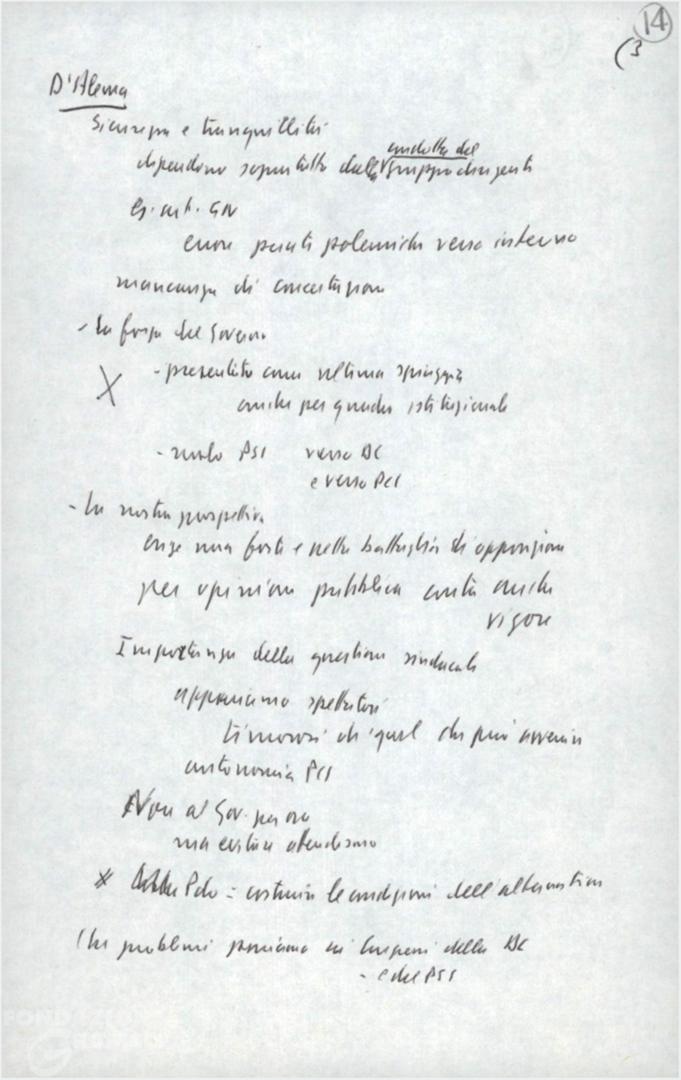 14
(3
D'Alema
Sicurezza e tranquillità
condotta del
dipendono soprattutto dalla gruppo dirigente
Es. art. GN
errori punti polemiche verso interno
mancanza di concertazione
- La forza del Governo
X - presentato come ultima spiaggia
anche per quadro istituzionale
- ruolo PSI verso DC
e verso PCI
- La nostra prospettiva
esige una forte e netta battaglia di opposizione
per opinione pubblica conta anche
vigore
Importanza della questione sindacale
appariamo spettatori
timorosi di quel che può avvenire
autonomia PCI
Non al Gov. per ora
ma evitare attendismo
x Pdo = costruire le condizioni dell'alternativa
Che problemi poniamo ai della DC
- e del PSI
FONDAZIONE
GRAMSCI